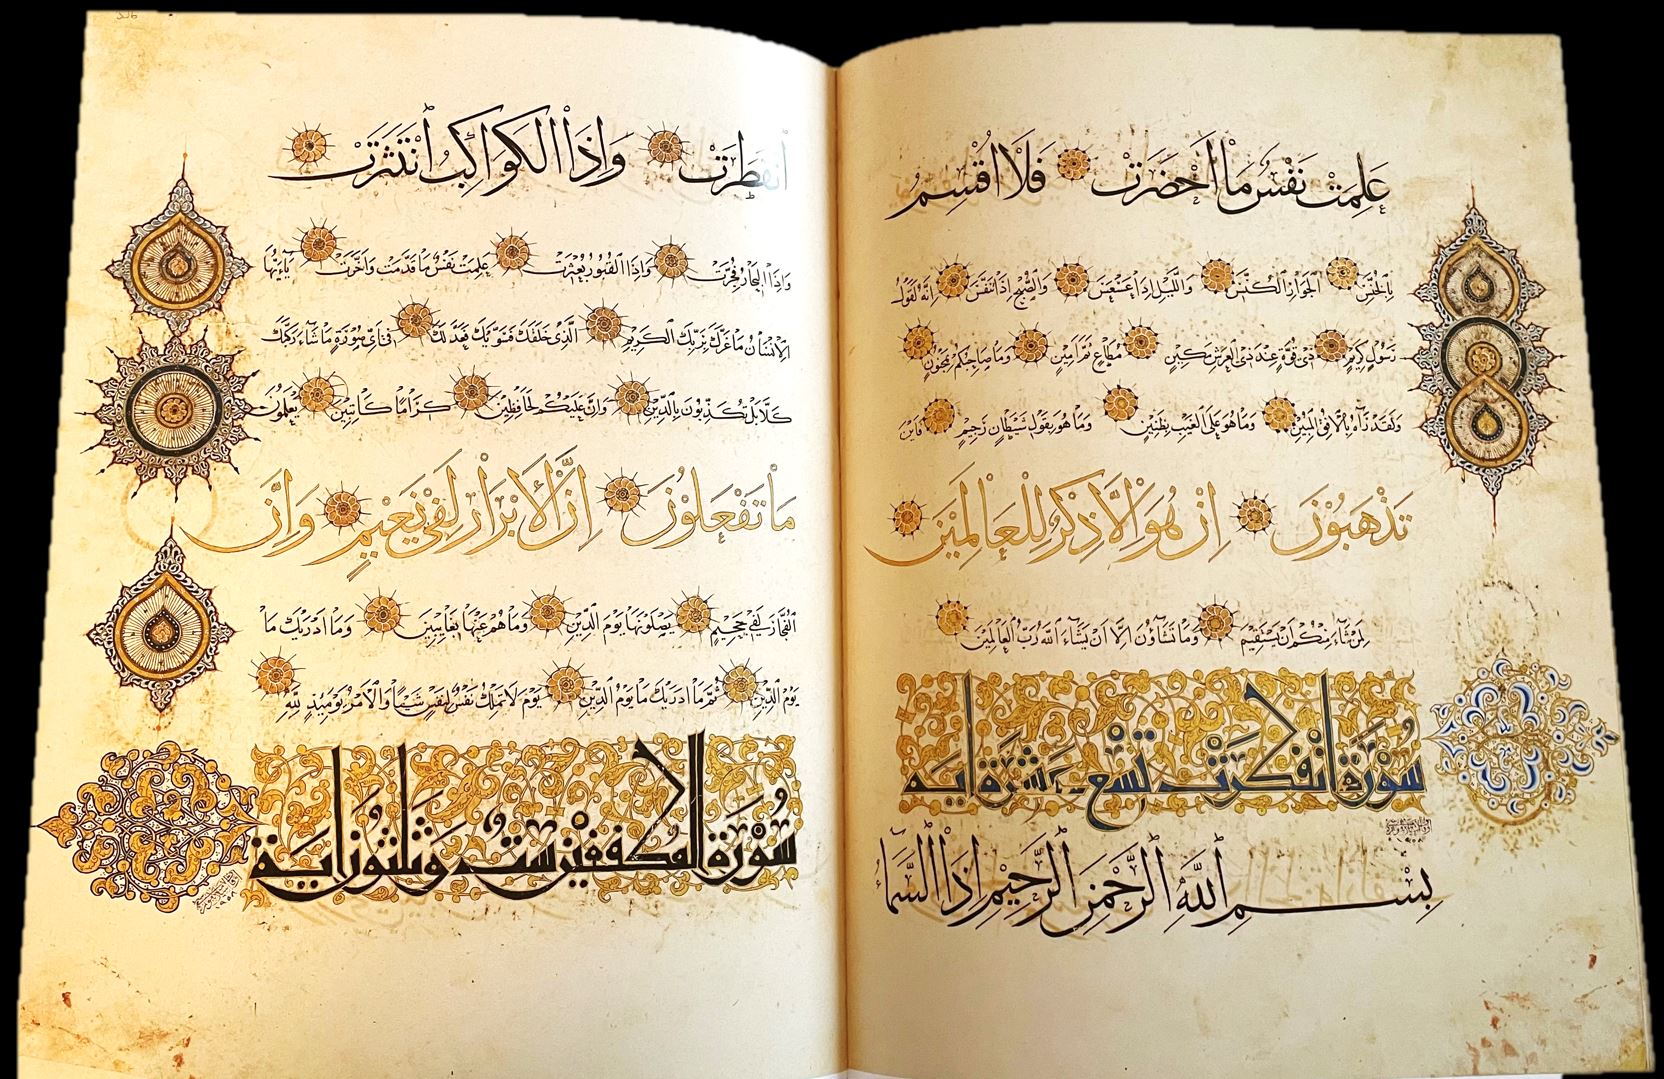 عَلِمَتْ نَفْسٌ مَا أَحْضَرَتْ فَلَا اُقْسِمُ
بِالْخُنَّسِ الْجَوَارِ الْكُنَّسِ وَاللَّيْلِ اِذَا عَسْعَسَ وَالصُّبْحِ اِذَا تَنَفَّسَ اِنَّهُ لَقَوْلُ
رَسُولٍ كَرِيمٍ ذِى قُوَّةٍ عِنْدَ ذِى الْعَرْشِ مَكِينٍ مُطَاعٍ ثَمَّ اَمِينٍ وَمَا صَاحِبُكُمْ بِمَجْنُونٍ
وَلَقَدْ رَآهُ بِالْاُفُقِ الْمُبِينِ وَمَا هُوَ عَلَى الْغَيْبِ بِظَنِينٍ وَمَا هُوَ بِقَوْلِ شَيْطَانٍ رَجِيمٍ فَاَيْنَ
تَذْهَبُوْنَ اِنْ هُوَ اِلَّا ذِكْرٌ لِلْعَالَمِيْنَ
لِمَنْ شَآءَ مِنْكُمْ اَنْ يَسْتَقِيمَ وَمَا تَشَآؤُنَ اِلَّا اَنْ يَشَآءَ اللّٰهُ رَبُّ الْعَالَمِينَ
سُوْرَة انفطرت تسع عشرة ايه
بِسْمِ اللّٰهِ الرَّحْمٰنِ الرَّحِيْمِ اِذَا السَّمَآءُ
اَنْفَطَرَتْ وَاِذَا الْكَوَاكِبُ انْتَثَرَتْ
وَاِذَا الْبِحَارُ فُجِّرَتْ وَاِذَا الْقُبُورُ بُعْثِرَتْ عَلِمَتْ نَفْسٌ مَا قَدَّمَتْ وَاَخَّرَتْ يَآاَيُّهَا
الْاِنْسَانُ مَا غَرَّكَ بِرَبِّكَ الْكَرِيمِ الَّذِى خَلَقَكَ فَسَوّٰيكَ فَعَدَلَكَ فِى اَىِّ صُورَةٍ مَا شَآءَ رَكَّبَكَ
كَلَّا بَلْ تُكَذِّبُونَ بِالدِّينِ وَاِنَّ عَلَيْكُمْ لَحَافِظِينَ كِرَامًا كَاتِبِينَ يَعْلَمُونَ
مَا تَفْعَلُوْنَ اِنَّ الْاَبْرَارَ لَفِىْ نَعِيْمٍ وَاِنَّ
الْفُجَّارَ لَفِى جَحِيمٍ يَصْلَوْنَهَا يَوْمَ الدِّينِ وَمَا هُمْ عَنْهَا بِغَآئِبِينَ وَمَا اَدْرٰيكَ مَا
يَوْمُ الدِّينِ ثُمَّ مَا اَدْرٰيكَ مَا يَوْمُ الدِّينِ يَوْمَ لَا تَمْلِكُ نَفْسٌ لِنَفْسٍ شَيْئًا وَالْاَمْرُ يَوْمَئِذٍ لِلّٰهِ
سُوْرَة المطففين ست وثلثون اية